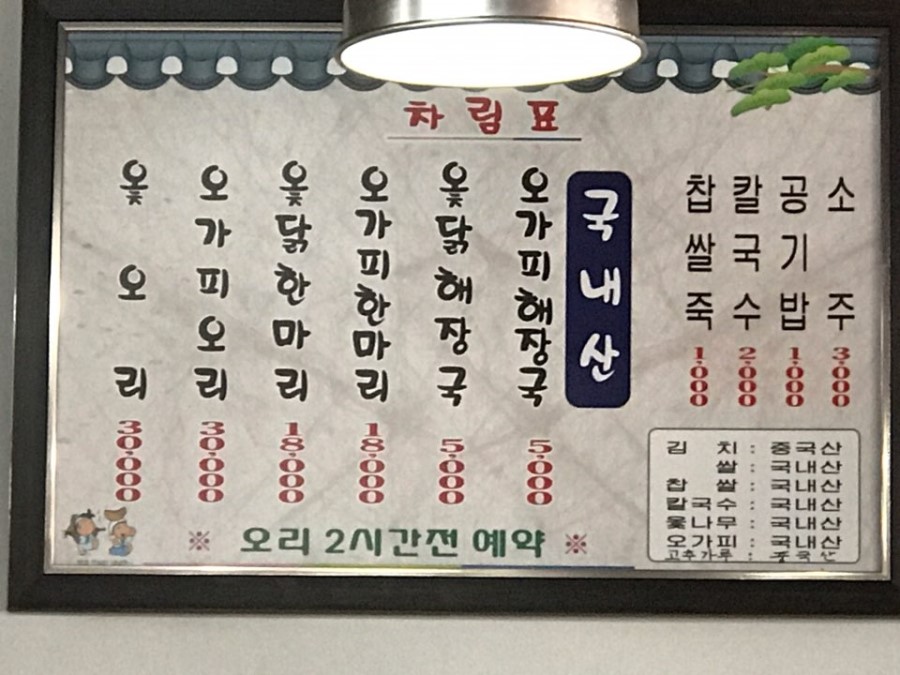 차림표
옻오리 30,000
오가피오리 30,000
옻닭한마리 18,000
오가피한마리 18,000
옻닭해장국 5,000
오가피해장국 5,000
국내산
찹쌀죽 1,000
칼국수 2,000
공기밥 1,000
소주 3,000
김 치 : 중국산
쌀 : 국내산
찹 쌀 : 국내산
칼국수 : 국내산
옻나무 : 국내산
오가피 : 국내산
고추가루 : 중국산
※ 오리 2시간전 예약 ※